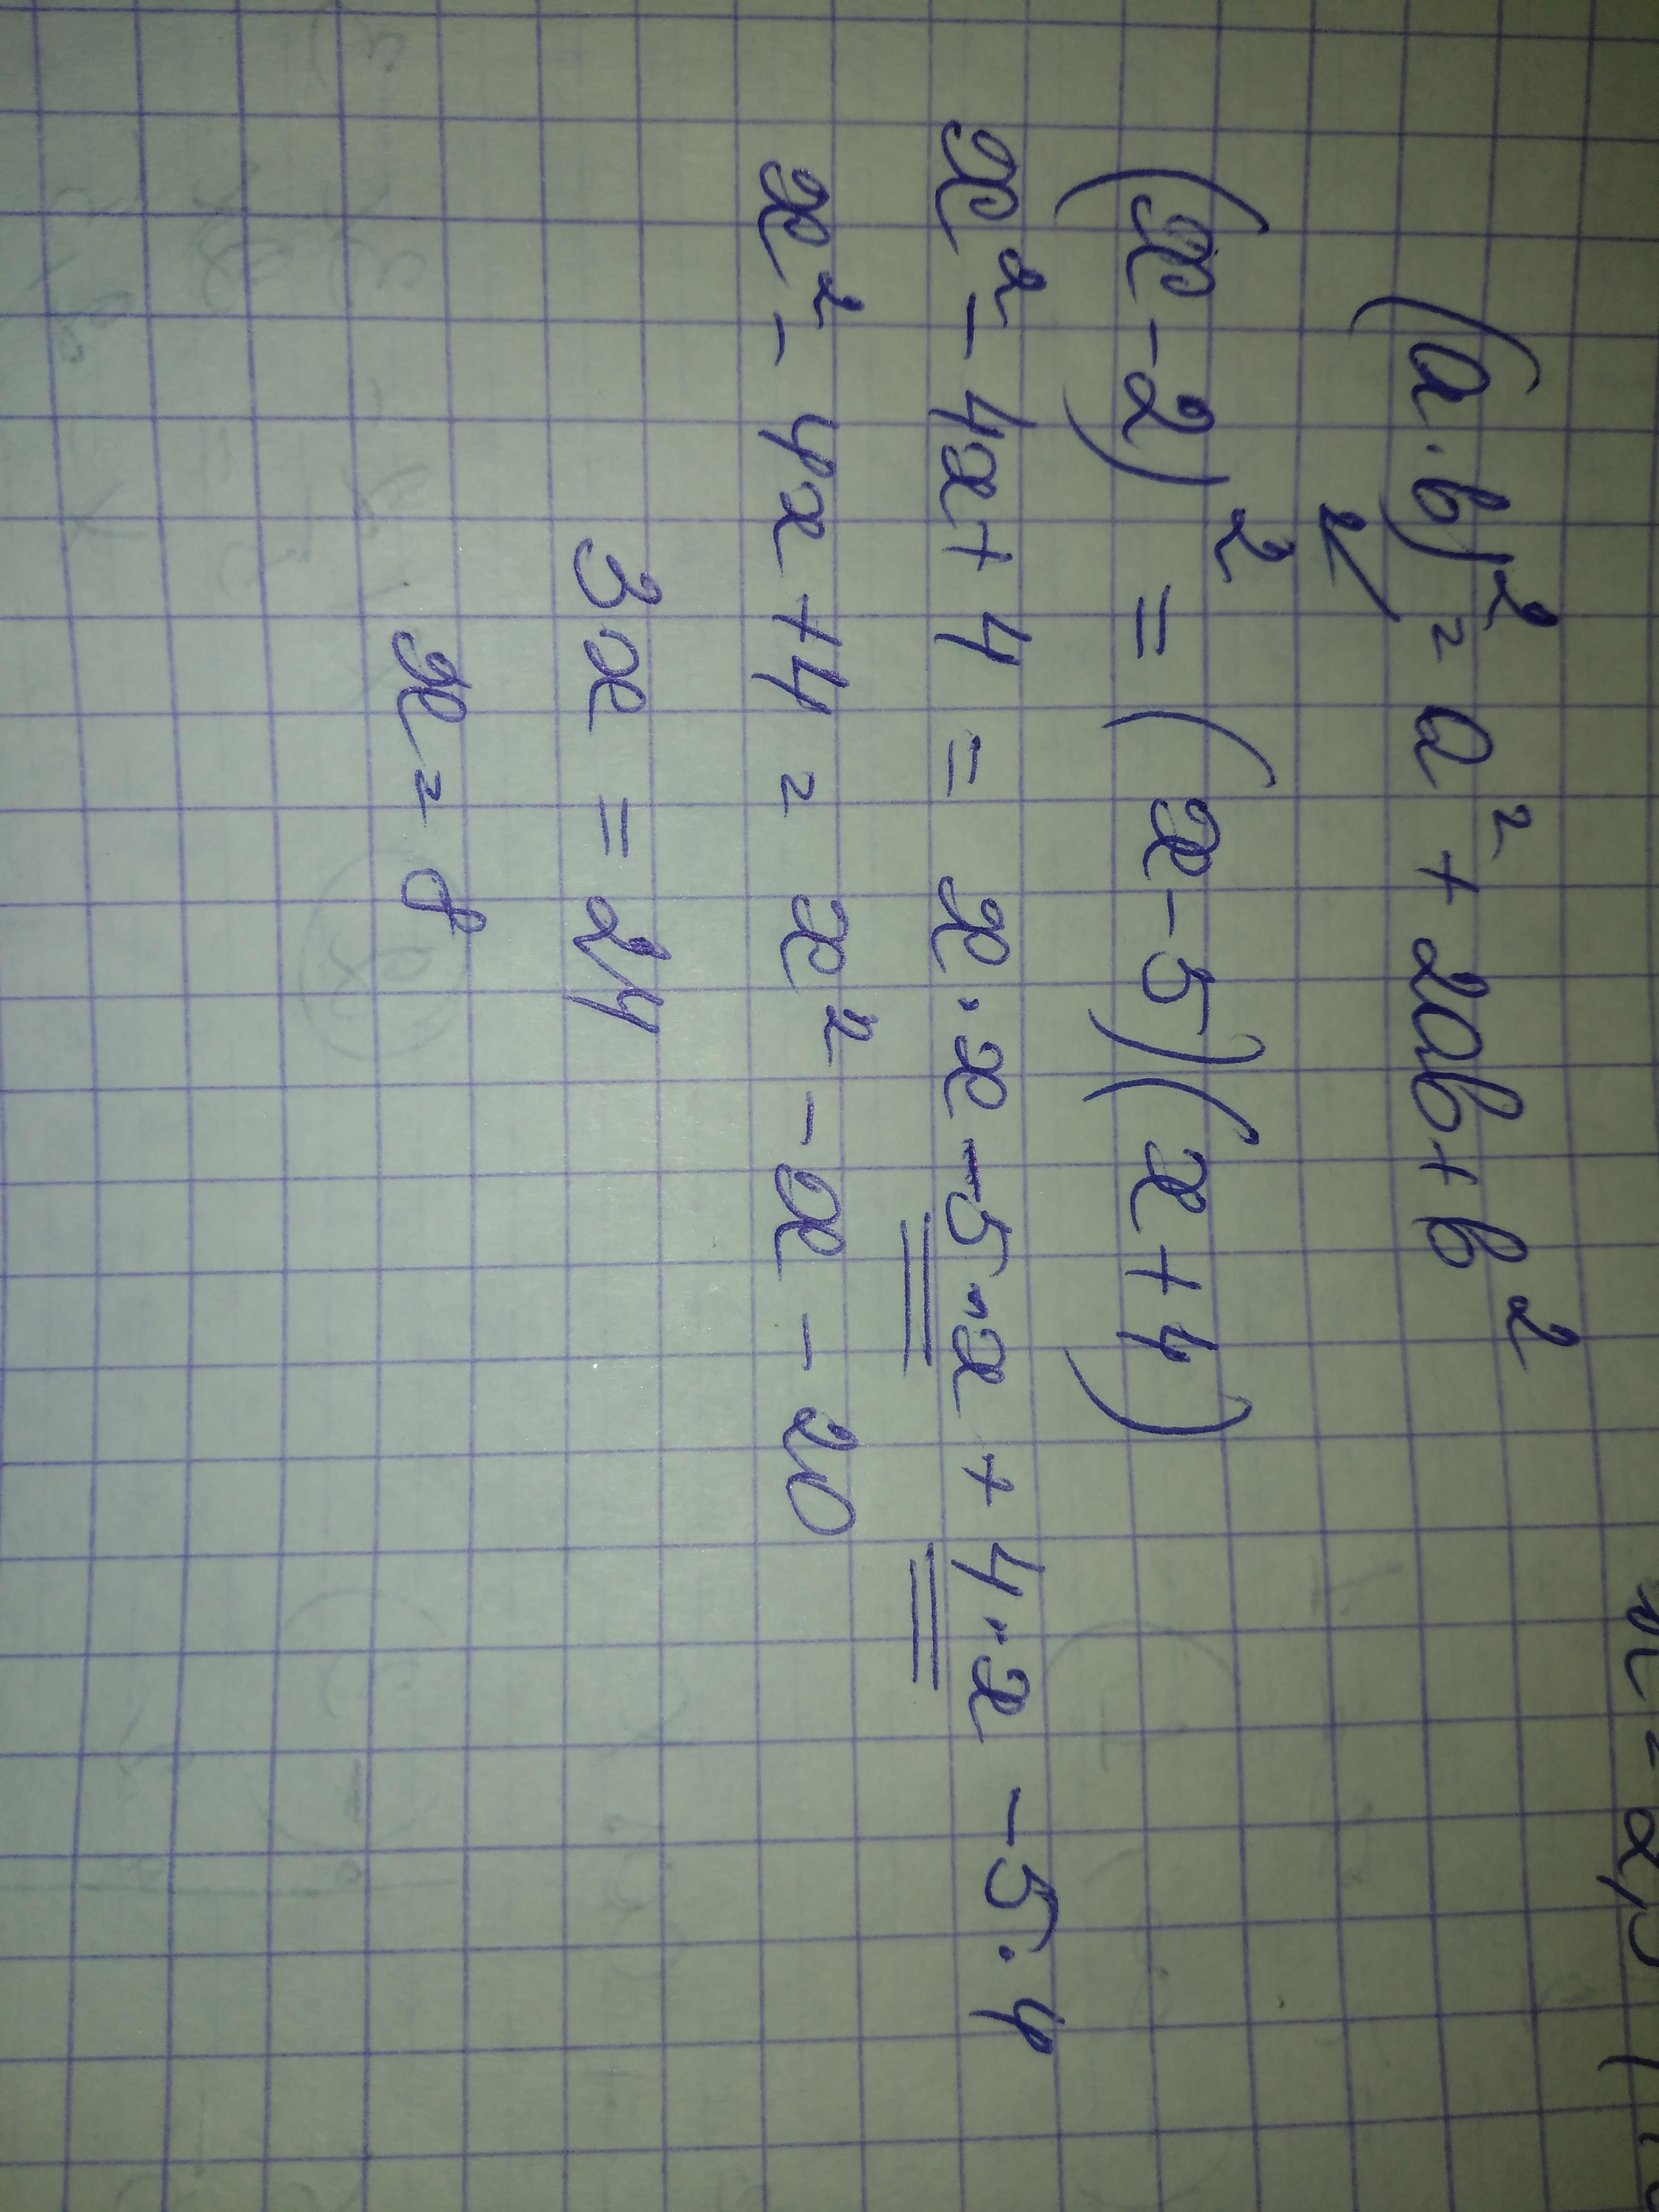 (a·b)² = a² + 2ab + b²
2
(x - 2)² = (x - 5)(x + 4)
x² - 4x + 4 = x·x - 5·x + 4·x - 5·4
x² - 4x + 4 = x² - x - 20
3x = 24
x = 8